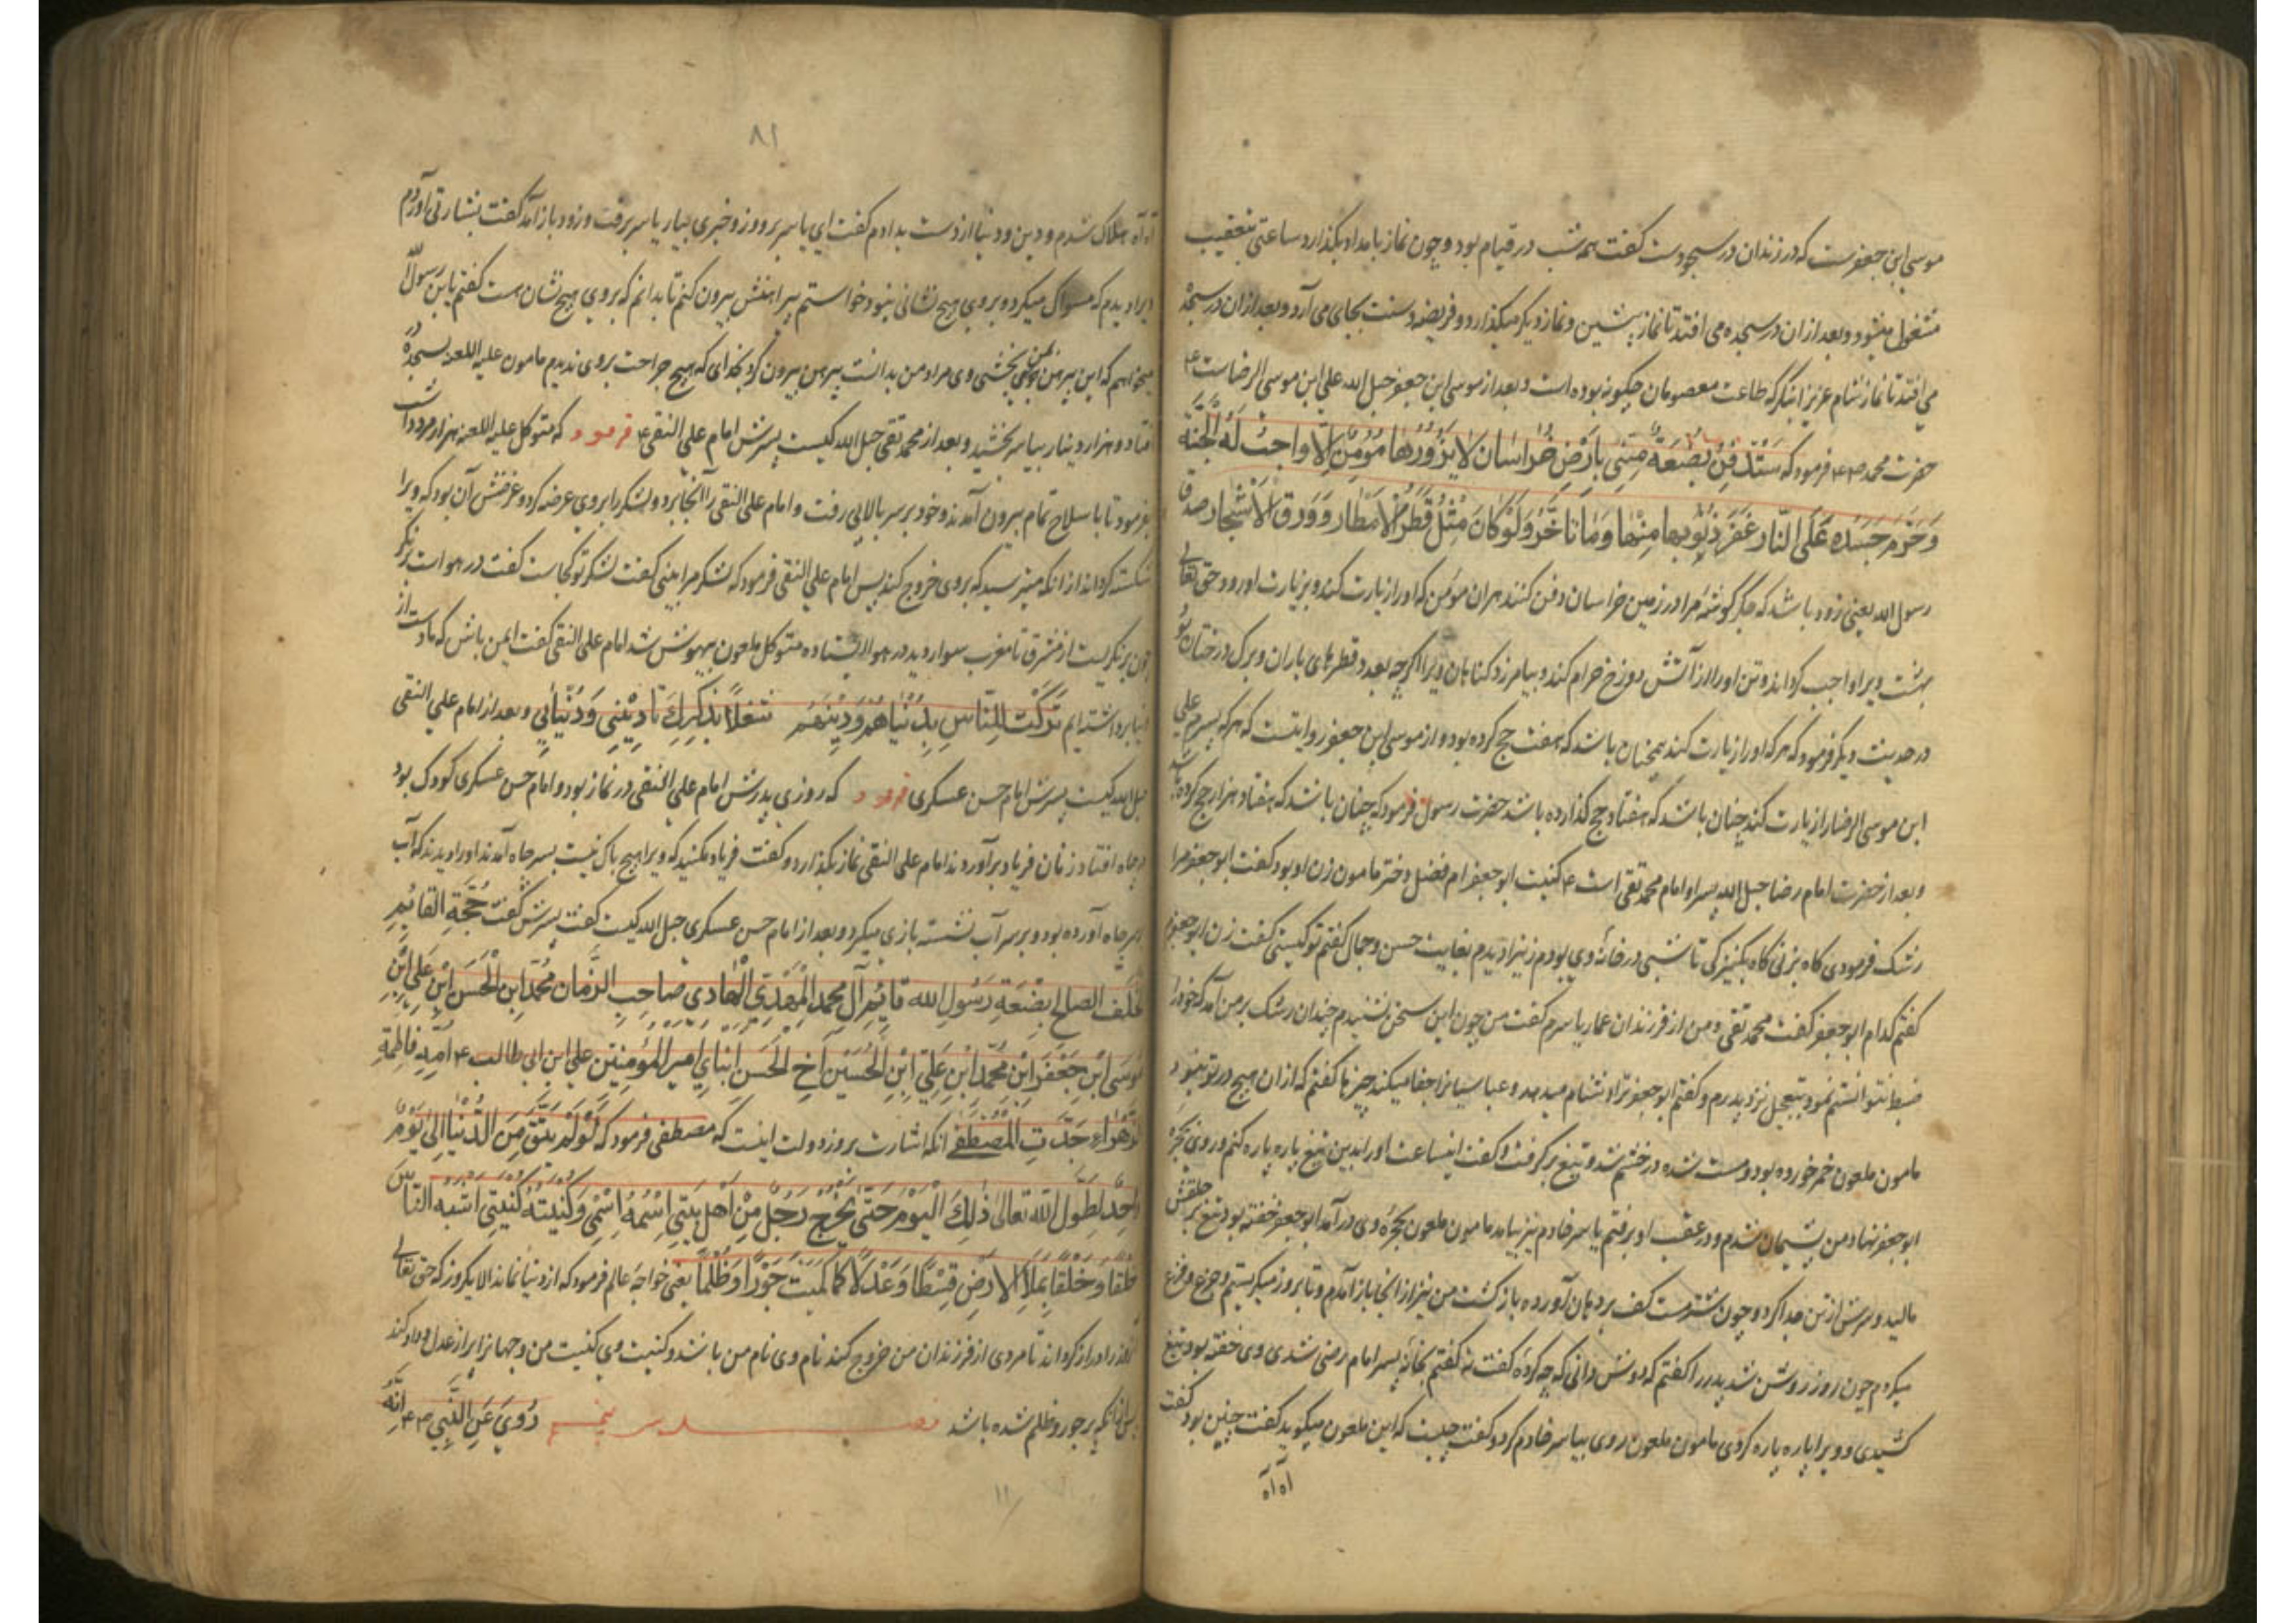 موسی ابن جعفرست که در زندان در سجودست کفت همه شب در قیام بود و چون نماز بامداد بکذارد ساعتی بتعقیب
مشغول میشود و بعد از ان در سجده می افتد تا نماز پیشین و نماز دیکر میکذارد و فریضه و سنت بجای می آرد و بعد از ان در سجده
می افتد تا نماز شام عزیزا بنکر که طاعت معصومان چکونه بوده است و بعد از موسی ابن جعفر حبل الله علی ابن موسی الرضاست ع
حضرت محمد فرمود که سَتُدْفَنُ بَضْعَةٌ مِنّی بِاَرْضِ خُراسان لا یَزُورُها مُؤمِنٌ اِلّا واجبُ لَهُ الْجَنَّة
وَحَرَّمَ جَسَدَه عَلَی النّار غَفَرَ ذُنُوبها مِنْها وَما تاخَّرَ وَلَوْ کانَ مِثْلُ قَطْرِ الاَمْطار وَوَرَقِ الاَشْجار صدق
رسول الله یعنی زود باشد که جکر کوشهٔ مرا در زمین خراسان دفن کنند هر ان مؤمن که او را زیارت کند و بزیارت او رود حق تعالی
بهشت ویرا واجب کرداند و تن او را از آتش دوزخ حرام کند و بیامرزد کناهان ویرا اکرچه بعدد قطرهای باران و برک درختان بود
در حدیث دیکر فرمود که هر که او را زیارت کند همچنان باشد که هفت حج کرده بود و از موسی ابن جعفر روایتست که هر که پسرم علی
ابن موسی الرضا را زیارت کند چنان باشد که هفتاد حج کذارده باشد حضرت رسول فرمود که چنان باشد که هفتاد هزار حج کرده باشد
و بعد از حضرت امام رضا حبل الله پسر او امام محمد تقی است ع کنیت ابو جعفر ام فضل دختر مامون زن او بود کفت ابو جعفر مرا
رشک فرمودی کاه بزنی کاه بکنیزکی تا شبی در خانهٔ وی بودم زنیرا دیدم بغایت حسن و جمال کفتم تو کیستی کفت زن ابو جعفرم
کفتم کدام ابو جعفر کفت محمد تقی و من از فرزندان عمار یاسرم کفت من چون این سخن شنیدم چندان رشک بر من آمد که خود را
ضبط نتوانستم نمود بتعجیل نزد پدرم و کفتم ابو جعفر ترا دشنام میدهد و عباسیانرا جفا میکند چیزها کفتم که از ان هیچ در تو نبود
مامون ملعون خمر خورده بود و مست شده در خشم شد و تیغ بر کرفت و کفت اینساعت او را بدین تیغ پاره پاره کنم و روی بحجره
ابو جعفر نهاد من پشیمان شدم و در عقب او برفتم یاسر خادم نیز بیامد مامون ملعون بحجرهٔ وی در آمد ابو جعفر خفته بود تیغ بر حلقش
مالید و سرش از تن جدا کرد و چون شتر مست کف بر دهان آورده باز کشت من نیز از انجا باز آمدم و تا بروز میکریستم و جزع و فزع
میکردم چون روز روشن شد پدر را کفتم که دوش دانی که چه کردهٔ کفت نه کفتم بخانهٔ پسر امام رضی شدی وی خفته بود تیغ
کشیدی و ویرا پاره پاره کردی مامون ملعون روی بیاسر خادم کرد و کفت چیست که این ملعون میکوید کفت چنین بود کفت
آه آه
۸۱
آه آه هلاک شدم و دین و دنیا از دست بدادم کفت ای یاسر برو و زود خبری بیار یاسر برفت و زود باز آمد کفت بشارتی آوردم
ویرا دیدم که مسواک میکرد و بر وی هیچ نشانی نبود خواستم پیراهنش بیرون کنم تا بدانم که بر وی هیچ نشان هست کفتم یا بن رسول الله
میخواهم که این پیرهن بمن بخشی وی مراد من بدانست پیرهن بیرون کرد بخدای که هیچ جراحت بر وی ندیدم مامون علیه اللعنه بسجده در
افتاد و هزار دینار بیاسر بخشید و بعد از محمد تقی حبل الله کیست پسرش امام علی النقی ع فرمود که متوکل علیه اللعنه هزار مرد داشت
بفرمود تا با سلاح تمام بیرون آمدند و خود بر سر بالایی رفت و امام علی النقی را آنجا برد و لشکر را بر وی عرضه کرد و غرضش آن بود که ویرا
شکسته کرداند از انکه میترسید که بر وی خروج کند پس امام علی النقی فرمود که لشکر مرا بینی کفت لشکر تو کجاست کفت در هواست برنکر
چون برنکریست از مشرق تا مغرب سوار دید در هوا ایستاده متوکل ملعون بیهوش شد امام علی النقی کفت ایمن باش که ما دست از
دنیا برداشته ایم تَرَکْتُ لِلنّاسِ بِدُنْیاهُمْ وَدِینَهُم شُغلاً بِذِکْرِكَ یا دِیْنی وَدُنْیائی و بعد از امام علی النقی
حبل الله کیست پسرش امام حسن عسکری فرمود که روزی پدرش امام علی النقی در نماز بود و امام حسن عسکری کودک بود
در چاه افتاد زنان فریاد بر آوردند امام علی النقی نماز بکذارد و کفت فریاد مکنید که ویرا هیچ باک نیست بسر چاه آمدند او را دیدند که آب
بسر چاه آورده بود و بر سر آب نشسته بازی میکرد و بعد از امام حسن عسکری حبل الله کیست کفت پسرش کفت حُجَّةِ القائِمِ
الخَلَف الصالح بَضْعَةِ رَسُولِ الله قائِم آلِ محمد المَهْدِی الْهادی صاحِبِ الزَّمان مُحَمَّد ابن الْحَسَن ابْنِ عَلی ابْنِ
مُوسَی ابْنِ جَعْفَر ابْنِ مُحَمَّد ابْنِ عَلِیّ ابْنِ الْحُسَیْن اَخِ الْحَسَن ابْنای اَمیرِ الْمُؤمِنین علی ابن ابی طالب ع اُمِّهِ فاطِمَةِ
الزَّهْراء جَدّه المُصْطَفی انکه اشارت بروز دولت اینست که مصطفی فرمود که لَوْ لَمْ یَبْقَ مِنَ الدُّنْیا اِلّا یَوْمٌ
واحِدٌ لَطَوَّلَ الله تَعالی ذلِكَ الْیَوْمَ حَتّی یَخْرُجَ رَجُلٌ مِنْ اَهْلِ بَیْتی اِسْمُهُ اِسْمی وَکُنْیَتُهُ کُنْیَتی اَشْبَهُ النّاسَ
خَلْقاً وَخُلْقاً یَملأ الاَرْضَ قِسْطاً وَعَدْلاً کَما مُلِئَتْ جَوْراً وَظُلْماً یعنی خواجهٔ عالم فرمود که از دنیا نماند الا یکروز که حق تعالی
آنروز را دراز کرداند تا مردی از فرزندان من خروج کند نام وی نام من باشد و کنیت وی کنیت من و جهانرا پر از عدل و داد کند
پس از آنکه پر جور و ظلم شده باشد رُوِیَ عَنِ النَّبِی اَنَّهُ
۱۱